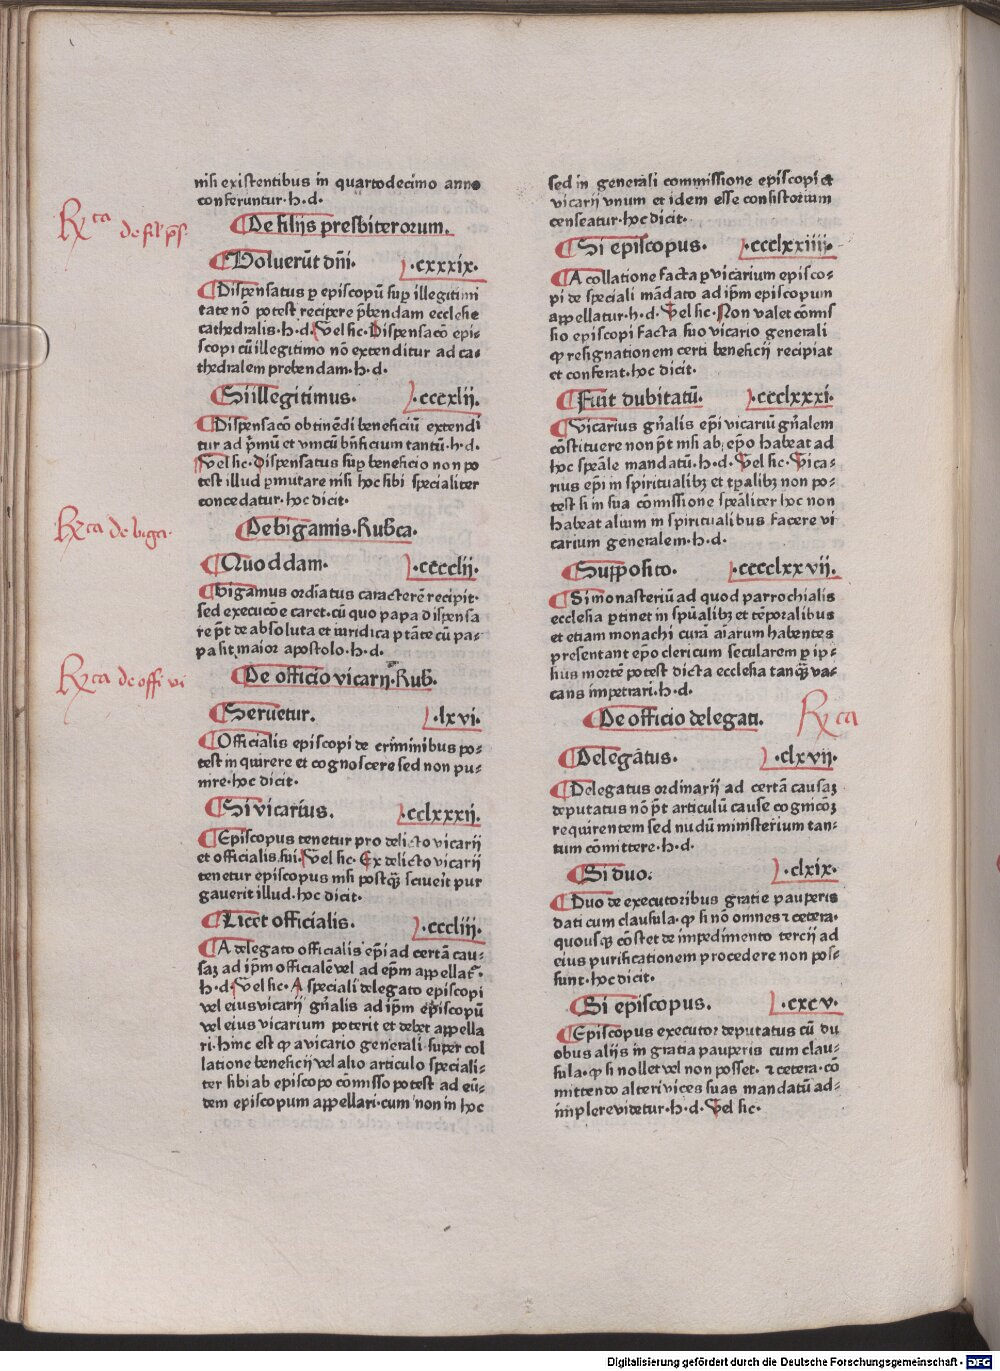 nisi existentibus in quartodecimo anno
conferuntur·h·d·
Rca de fil' p̄s·
De filijs presbiterorum.
Voluerūt dn̄i· ·cxxxix·
Dispensatus ꝑ episcopū suꝑ illegitimi
tate nō potest recipere p̄bendam ecclesie
cathedralis·h·d· Vel sic·Dispensacō epi⸗
scopi cū illegitimo nō extenditur ad ca⸗
thedralem prebendam·h·d·
Si illegitimus· ·cccxlij·
Dispensacō obtinēdi beneficiū extendi
tur ad p̄mū et vnicū bn̄ficium tantū·h·d·
Vel sic·Dispensatus suꝑ beneficio non po
test illud ꝑmutare nisi hoc sibi specialiter
concedatur·hoc dicit·
Rca de biga·
De bigamis·Rubca·
Quoddam· ·cccclij·
Bigamus ordīatus caracterē recipit·
sed execucōe caret·cū quo papa dispensa
re p̄t de absoluta et iuridica ptāte cū pa⸗
pa sit maior apostolo·h·d·
Rca de offi vi
De officio vicarij·Rub.
Seruetur. ·lxvi·
Officialis episcopi de criminibus po⸗
test inquirere et cognoscere sed non pu⸗
nire·hoc dicit·
Si vicarius. ·cclxxxij.
Episcopus tenetur pro delicto vicarij
et officialis sui· Vel sic·Ex delicto vicarij
tenetur episcopus nisi postqȝ sciueit pur
gauerit illud·hoc dicit·
Licet officialis. ·cccliij·
A delegato officialis ep̄i ad certā cau⸗
saȝ ad ip̄m officialē vel ad ep̄m appellat̄·
h·d· Vel sic·A speciali delegato episcopi
vel eius vicarij gn̄alis ad ip̄m episcopū
vel eius vicarium poterit et debet appella
ri·hinc est ꝙ a vicario generali super col
latione beneficij vel alio articulo speciali⸗
ter sibi ab episcopo cōmisso potest ad eū⸗
dem episcopum appellari·cum non in hoc
sed in generali commissione episcopi et
vicarij vnum et idem esse consistorium
censeatur·hoc dicit·
Si episcopus· ·ccclxxiiij·
A collatione facta ꝑ vicarium episco⸗
pi de speciali mādato ad ip̄m episcopum
appellatur·h·d· Vel sic·Non valet cōmis
sio episcopi facta suo vicario generali
ꝙ resignationem certi beneficij recipiat
et conferat·hoc dicit·
Fuit dubitatū· ·ccclxxxi·
Vicarius gn̄alis ep̄i vicariū gn̄alem
cōstituere non p̄t nisi ab ep̄o habeat ad
hoc speāle mandatū·h·d· Vel sic·Vica⸗
rius ep̄i in spiritualibȝ et tp̄alibȝ non po⸗
test si in sua cōmissione speāliter hoc non
habeat alium in spiritualibus facere vi
carium generalem·h·d·
Supposito. ·cccclxxvij.
Si monasteriū ad quod parrochialis
ecclesia ꝑtinet in sp̄ualibȝ et tēporalibus
et etiam monachi curā aīarum habentes
presentant ep̄o clericum secularem ꝑ ip⸗
sius mortē potest dicta ecclesia tanqȝ va⸗
cans impetrari·h·d·
De officio delegati. Rca
Delegātus. ·clxvij·
Delegatus ordinarij ad certā causaȝ
deputatus nō p̄t articulū cause cognicōȝ
requirentem sed nudū ministerium tan⸗
tum cōmittere·h·d·
Si duo· ·clxix·
Duo de executoribus gratie pauperis
dati cum clausula·ꝙ si nō omnes ⁊ cetera·
quousqȝ cōstet de impedimento tercij ad
eius purificationem procedere non pos⸗
sunt·hoc dicit·
Si episcopus. ·cxcv·
Episcopus executor deputatus cū du
obus alijs in gratia pauperis cum clau⸗
sula·ꝙ si nollet vel non posset· ⁊ cetera·cō
mittendo alteri vices suas mandatū ad⸗
implere videtur·h·d· Vel sic·
Digitalisierung gefördert durch die Deutsche Forschungsgemeinschaft - DFG